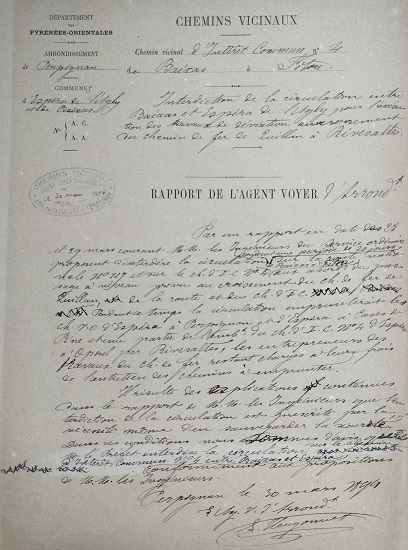 DÉPARTEMENT
DES
PYRÉNÉES-ORIENTALES
ARRONDISSEMENT
de Perpignan
COMMUNES
d'Espira de l'Agly
et de Baixas
Nos A. C.
A. A.
CHEMINS VICINAUX
Chemin vicinal d'Intérêt Commun No 4
de Baixas à Fitou
Interdiction de la circulation entre
Baixas et Espira de l'Agly pour l'exécu
tion des travaux de déviation
du chemin de fer de Quillan à Rivesaltes
RAPPORT DE L'AGENT VOYER d'Arrondt
Par un rapport en date des 28
et 29 mars courant M.M. les Ingénieurs du Service ordinaire
proposent d'interdire la circulation sur la route natio
nale No 117 et sur le ch. d'I.C. No 4 aux abords du pas
sage à niveau prévu au croisement du Ch. de fer de
Quillan de la route et du ch. d'I.C.
Pendant ce temps la circulation emprunterait les
ch. v. o. d'Espira à Perpignan et d'Espira à Cases de
Pène et une partie de l'emb. du Ch. d'I.C. No 4 d'Espira
à Opoul par Rivesaltes, les entrepreneurs des
travaux du Ch. de fer restant chargés à leurs frais
de l'entretien des chemins à emprunter.
Il résulte des explications contenues
dans le rapport de M.M. les Ingénieurs que l'in
terdiction de la circulation est justifiée par la
nécessité même d'en sauvegarder la sécurité
Dans ces conditions nous sommes d'avis
M. le Préfet interdise la circulation
d'Intérêt Commun No 4 entre Baixas et Espira
conformément aux propositions
de M.M. les Ingénieurs.
Perpignan le 30 mars 1894
L'Ag. V. d'Arrondt